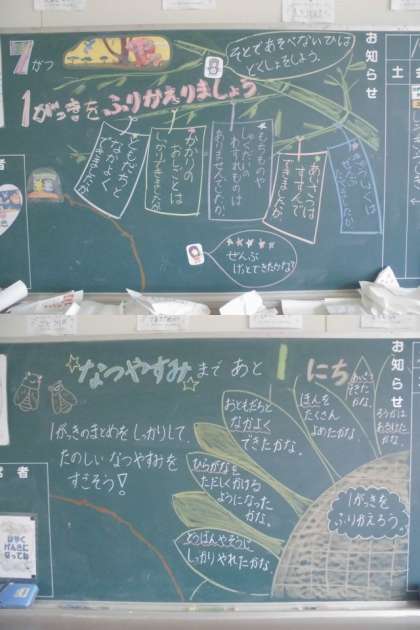 7がつ
そとであそべないひは
どくしょをしよう。
お知らせ
土
1がっきをふりかえりましょう
ともだちと
なかよく
できましたか
かかりの
おしごとは
しっかりできましたか
もちものや
しゅくだいの
わすれものは
ありませんでしたか
あいさつは
すすんで
できましたか
ぜんぶ
げっとできたかな?
お知らせ
なつやすみまであと1にち
1がっきのまとめをしっかりして、
たのしいなつやすみを
すごそう!
おともだちと
なかよく
できたかな。
ほんを
たくさん
よめたかな。
ろうかは
あるけた
かな。
ひらがなを
ただしくかける
ようになった
かな。
とうばんやそうじ
しっかりやれたかな
1がっきを
ふりかえろう。
はやく
げんきに
なってね